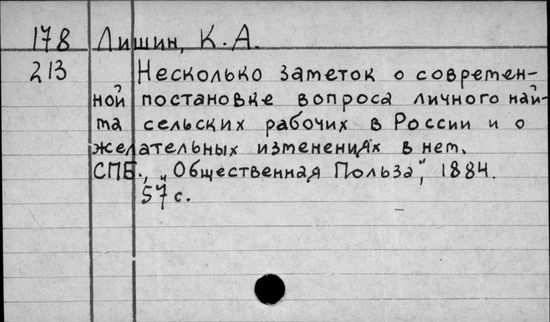 178 Лишин, К. А.
213 Несколько заметок о современ-
ной постановке вопроса личного най-
ма сельских рабочих в России и о
желательных изменениях в нем.
СПБ., „Общественная Польза", 1884.
57 с.